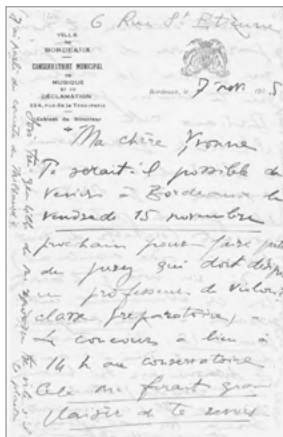 6 Rue St Etienne
VILLE
DE
BORDEAUX
CONSERVATOIRE MUNICIPAL
DE
MUSIQUE
ET DE
DÉCLAMATION
124, rue de la Trésorerie
Cabinet du Directeur
Bordeaux, le 7 nov. 19 5
Ma chère Yvonne
Te serait-il possible de
venir à Bordeaux le
vendredi 15 novembre
prochain pour faire partie
du jury qui doit désigner
un professeur de violon,
classe préparatoire,
Le concours a lieu à
14 h au conservatoire
Cela me ferait grand
plaisir de te revoir